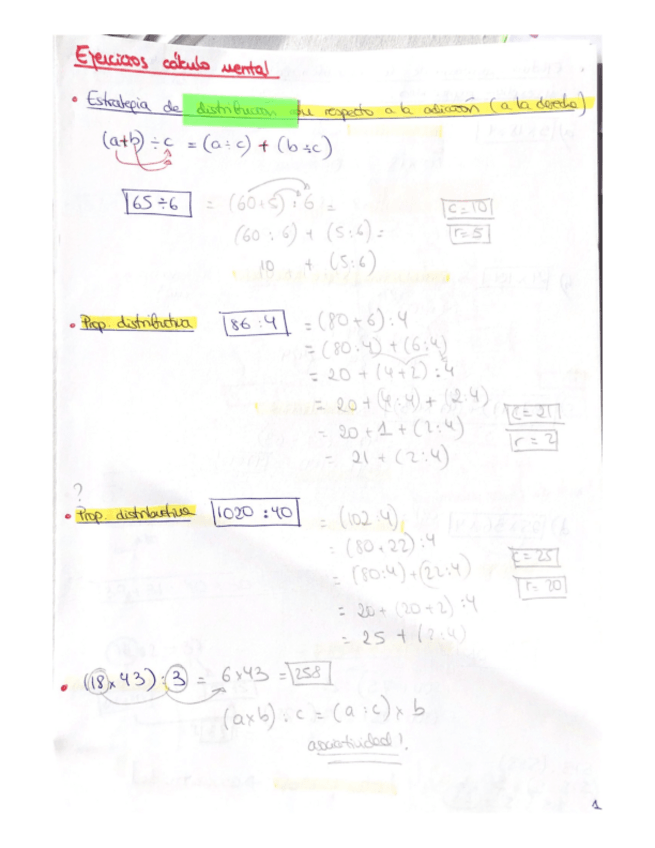 Ejercicios cálculo mental
• Estrategia de distribución con respecto a la adición (a la derecha)
(a+b) ÷ c = (a÷c) + (b÷c)
65÷6 = (60+5) : 6 =
c=10
(60 : 6) + (5:6) =
r=5
10 + (5:6)
• Prop. distributiva 86:4 = (80+6) : 4
= (80:4) + (6:4)
= 20 + (4+2) : 4
= 20 + (4:4) + (2:4)
c=21
= 20 + 1 + (2:4)
r=2
= 21 + (2:4)
?
• Prop. distributiva 1020 : 40 = (102:4)
= (80+22) : 4
c=25
= (80:4) + (22:4)
r=20
= 20 + (20+2) : 4
= 25 + (2:4)
• (18×43) : 3 = 6×43 = 258
(a×b) : c = (a:c) × b
asociatividad!
1